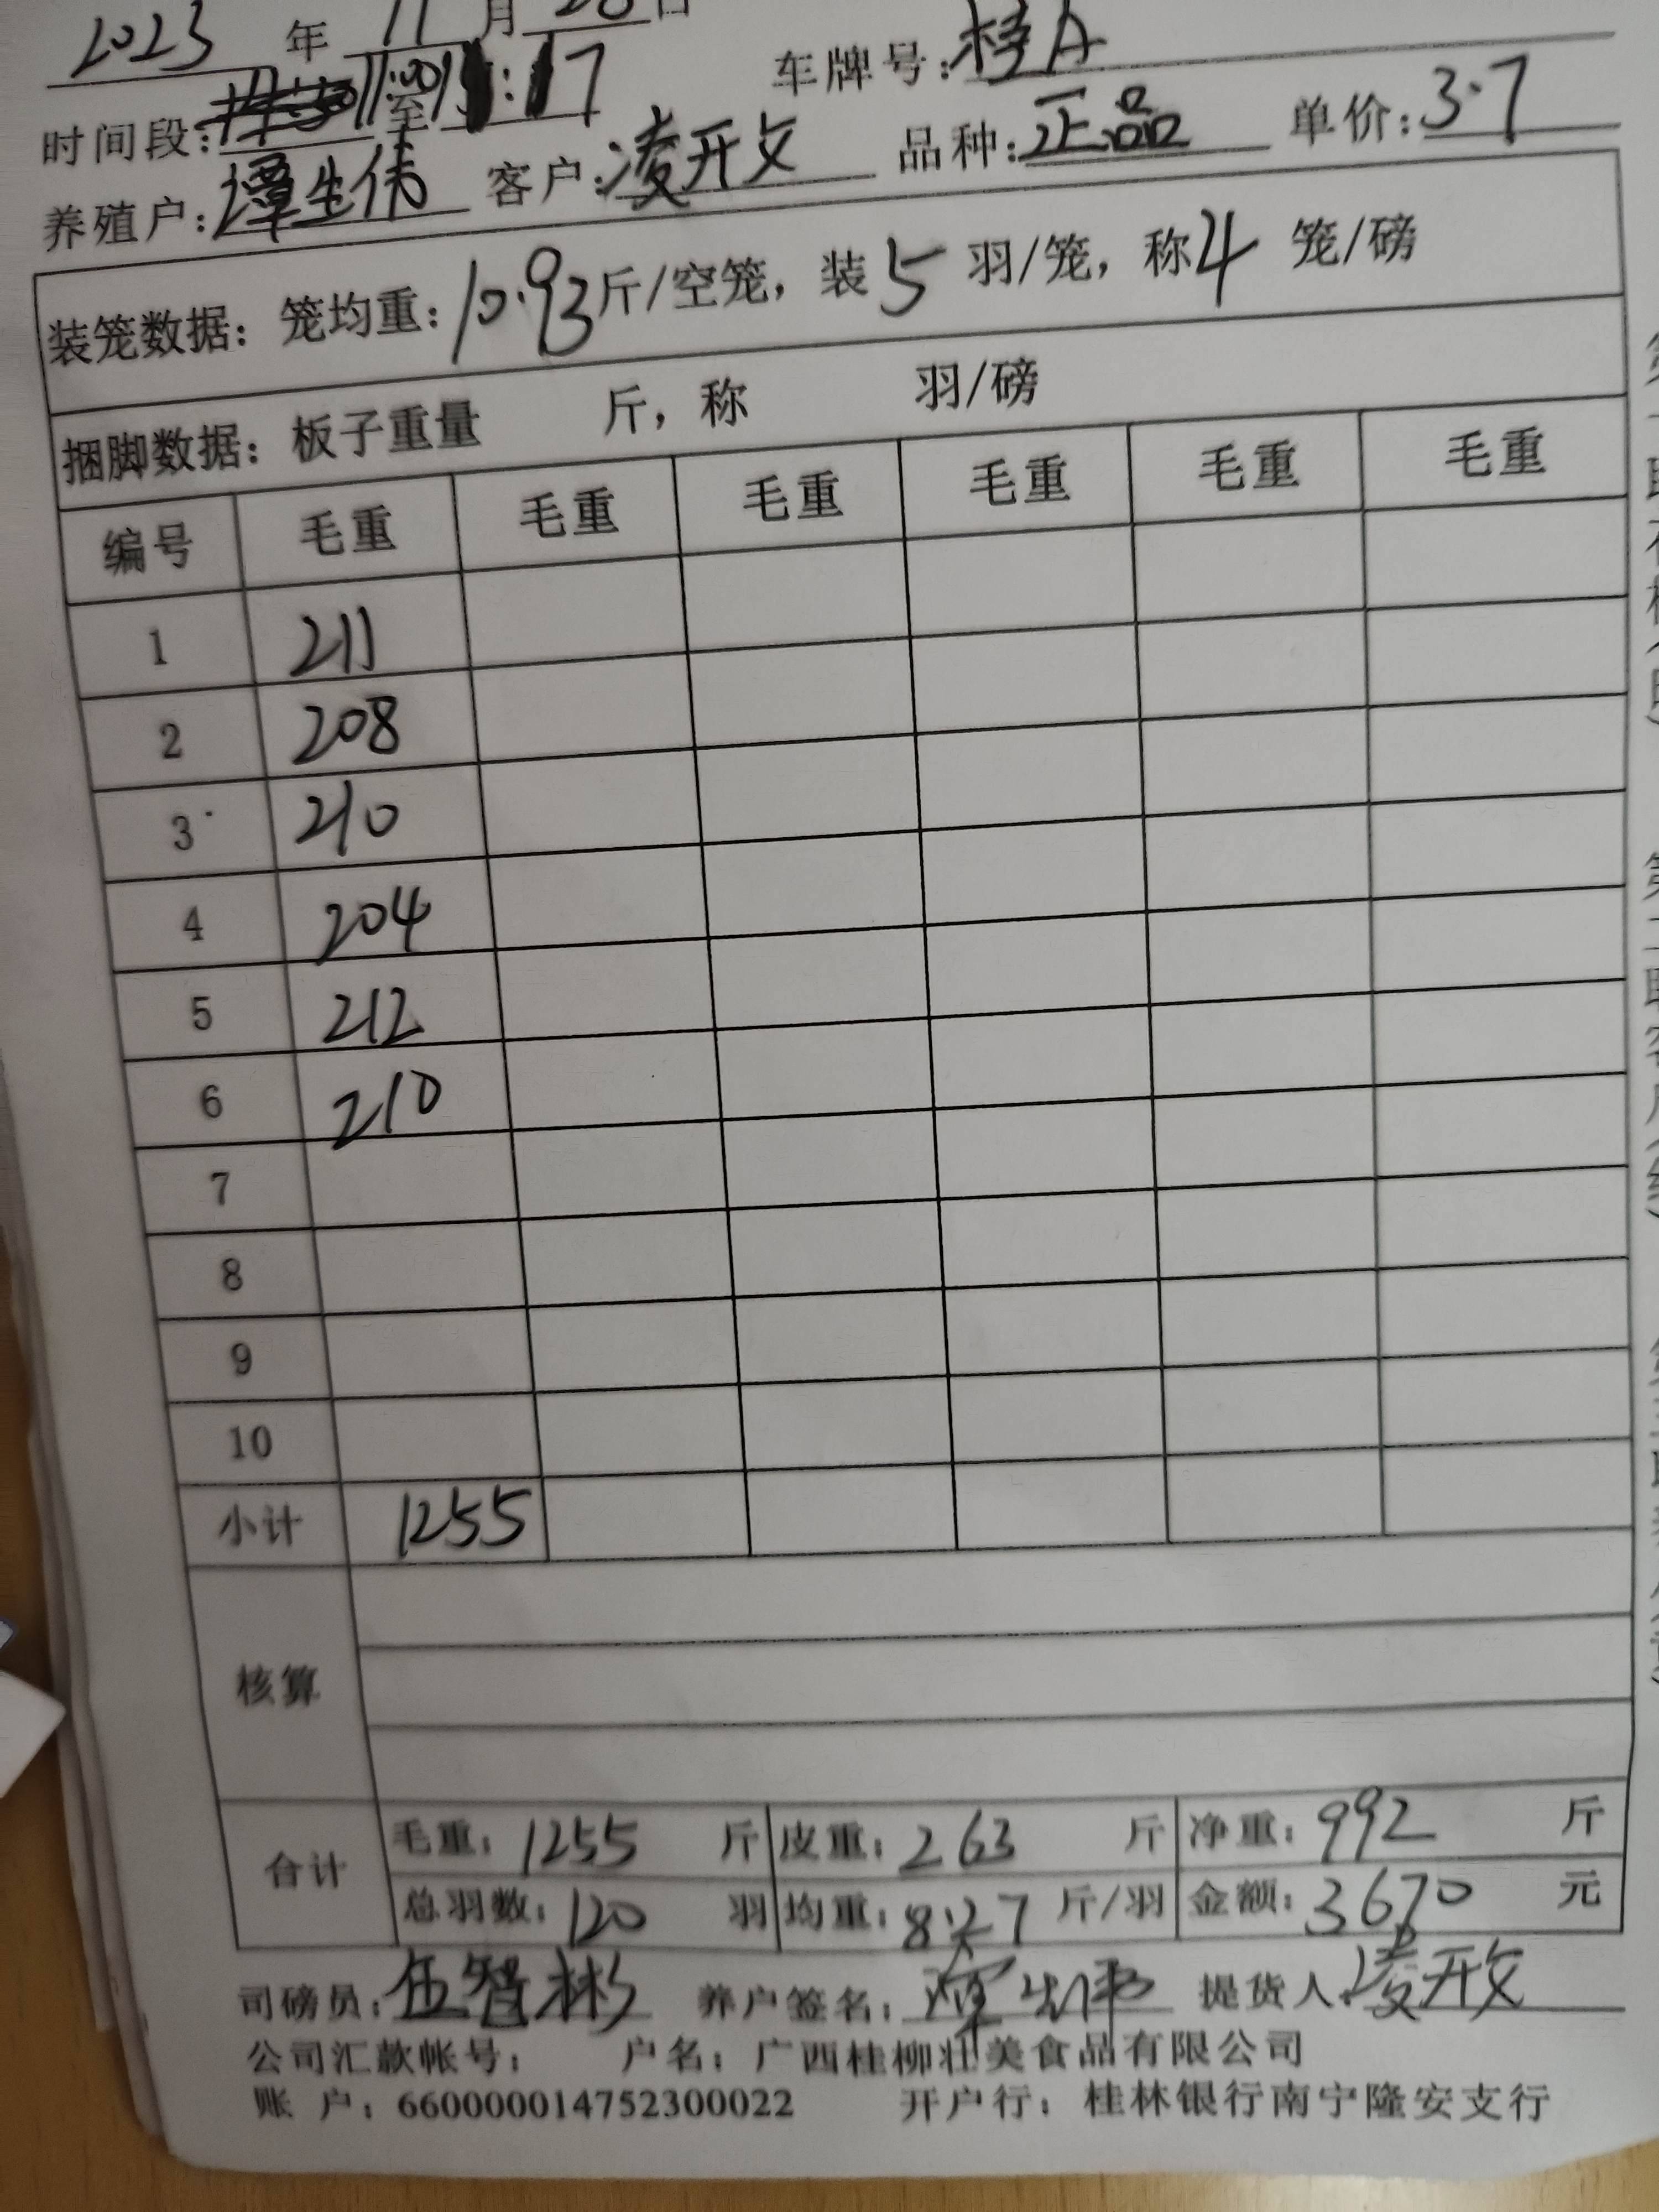 2023 年 11 月 28 日
车牌号:桂A
时间段: 11:00 至 :17
养殖户:谭生伟 客户:凌开文 品种:正品 单价:3.7
装笼数据:笼均重:10.93斤/空笼,装5羽/笼,称4笼/磅
捆脚数据:板子重量 斤,称 羽/磅
编号 毛重 毛重 毛重 毛重 毛重 毛重
1 211
2 208
3 210
4 204
5 212
6 210
7
8
9
10
小计 1255
核算
合计 毛重:1255 斤 皮重:263 斤 净重:992 斤
总羽数:120 羽 均重:8.27 斤/羽 金额:3670 元
司磅员:伍智彬 养户签名:谭生伟 提货人:凌开文
公司汇款帐号: 户名:广西桂柳壮美食品有限公司
账 户:660000014752300022 开户行:桂林银行南宁隆安支行